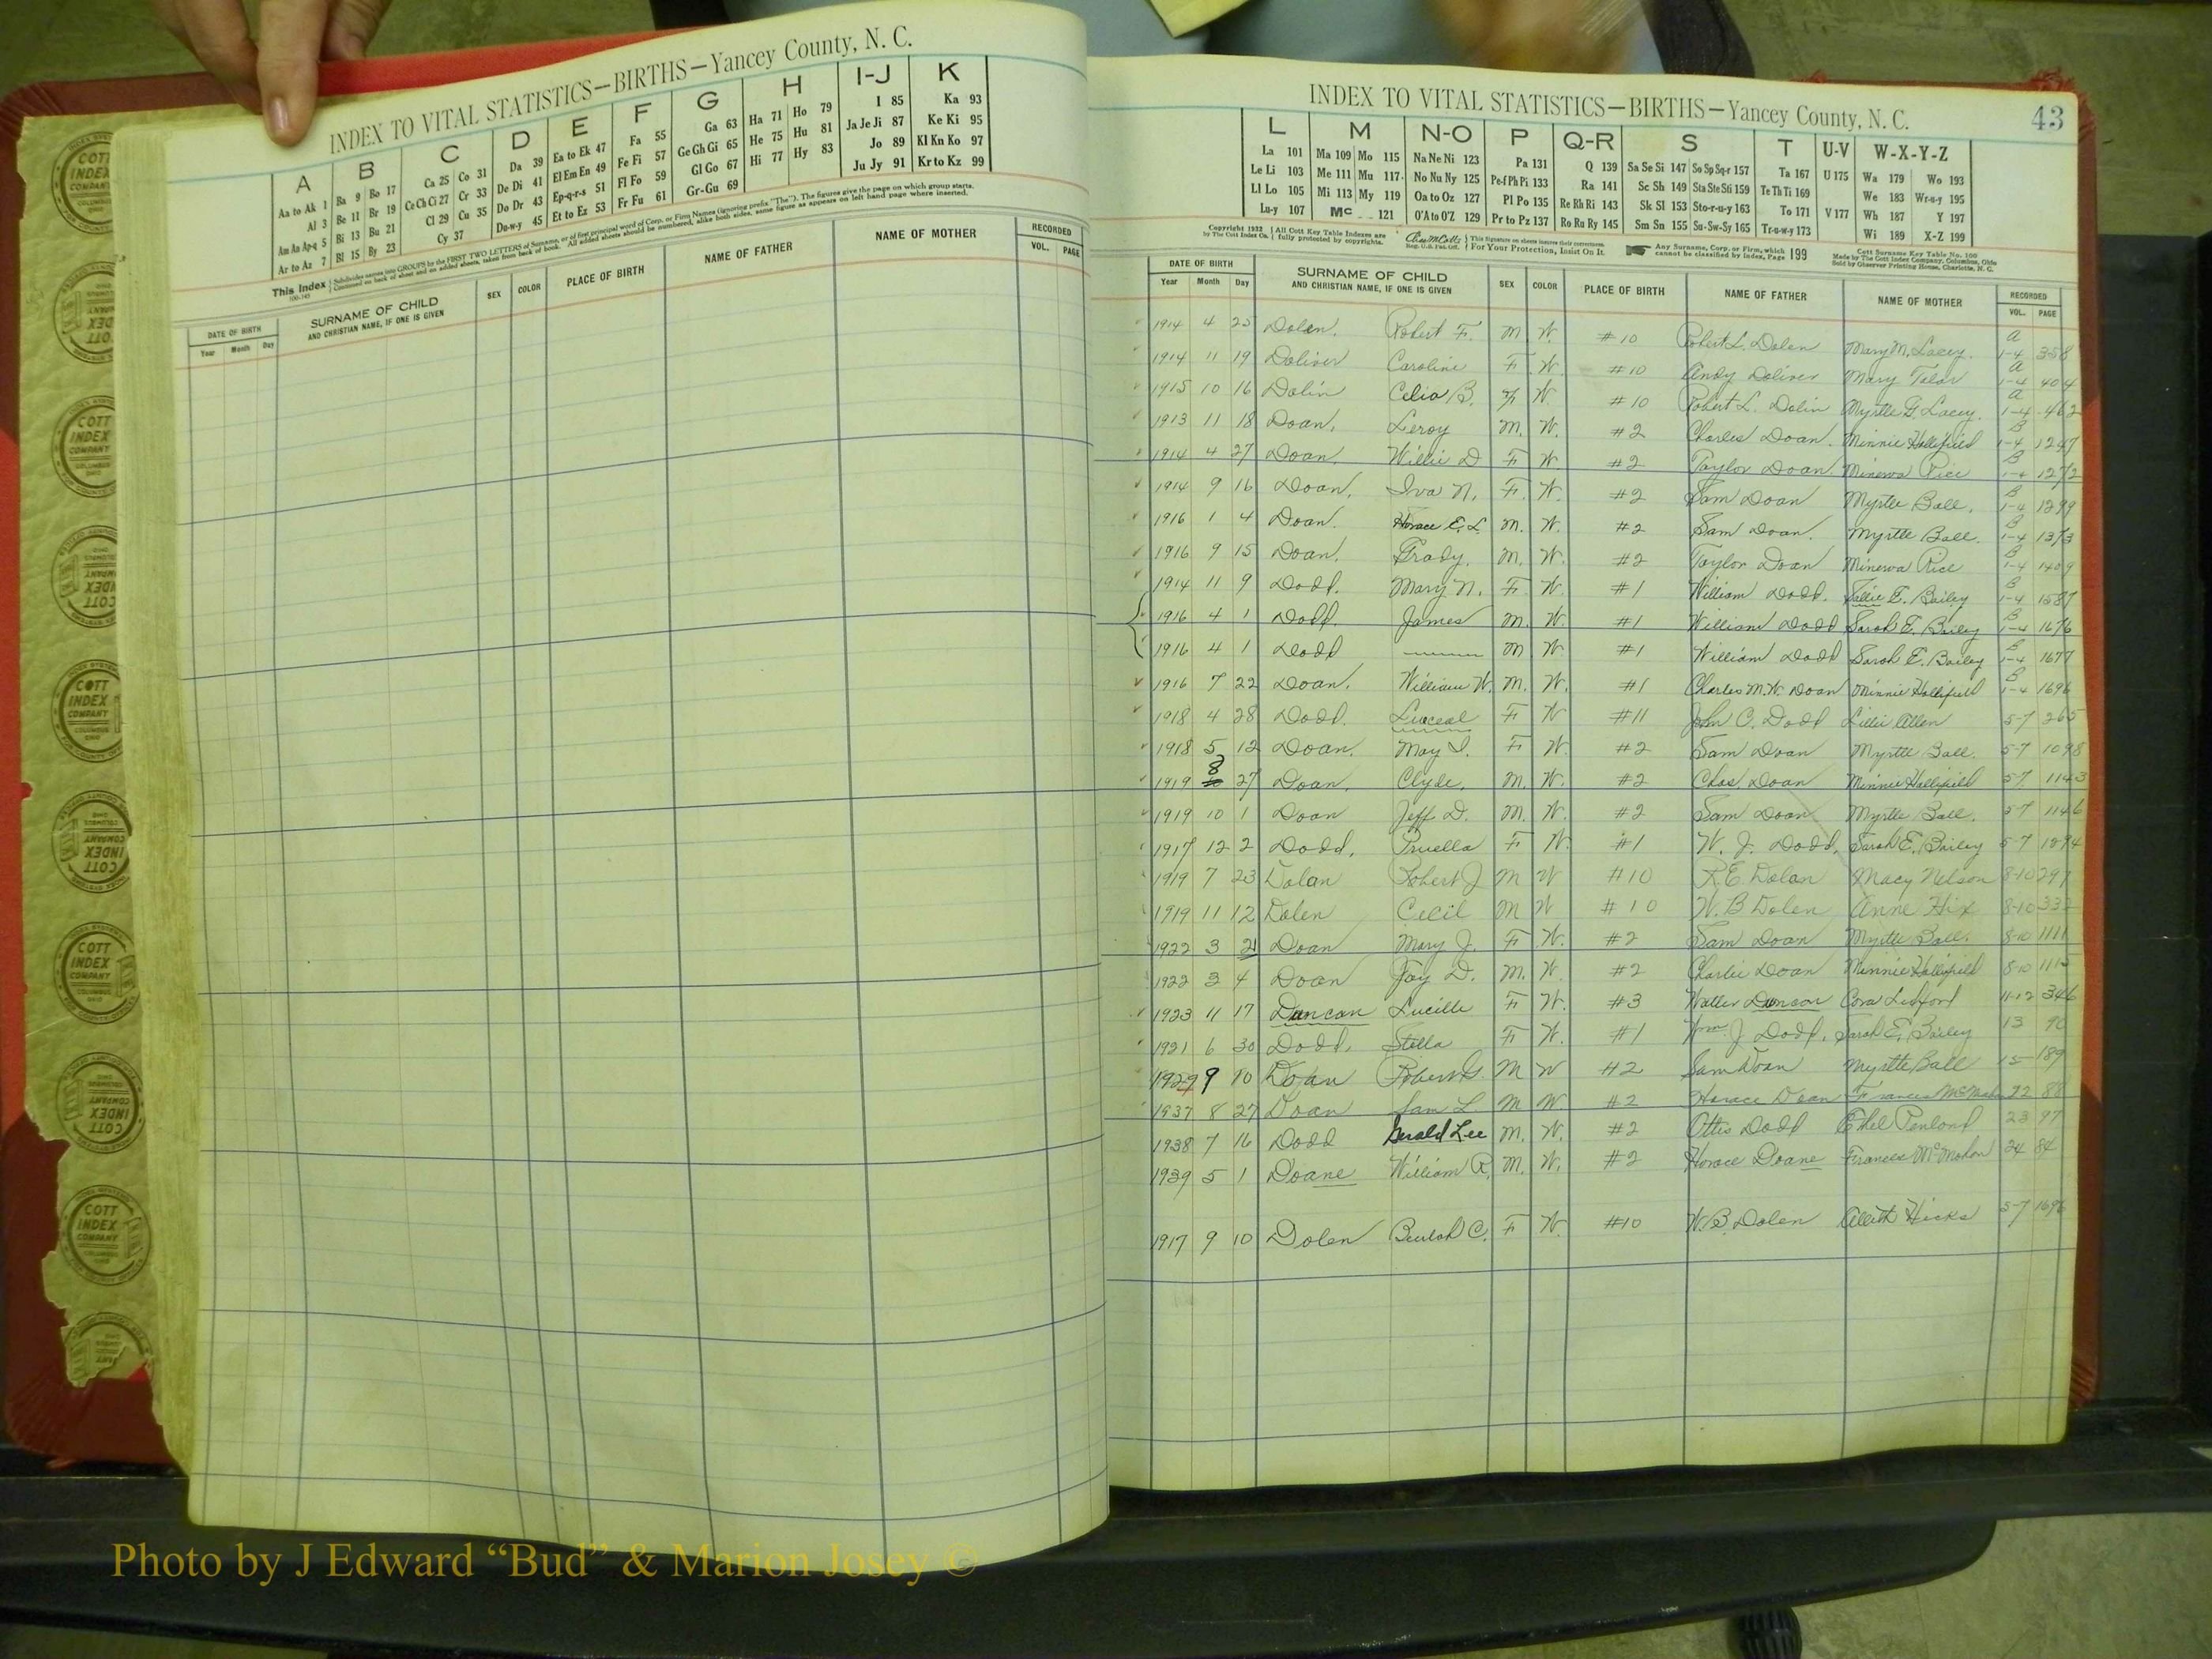 INDEX TO VITAL STATISTICS—BIRTHS—Yancey County, N. C.
A B C D E F G H I-J K
Aa to Ak 1 Ba 9 Bo 17 Ca 25 Co 31 Da 39 Ea to Ek 47 Fa 55 Ga 63 Ha 71 Ho 79 I 85 Ka 93
Al 3 Be 11 Br 19 Ce Ch Ci 27 Cr 33 De Di 41 El Em En 49 Fe Fi 57 Ge Gh Gi 65 He 75 Hu 81 Ja Je Ji 87 Ke Ki 95
Am An Ap-q 5 Bi 13 Bu 21 Cl 29 Cu 35 Do Dr 43 Ep-q-r-s 51 Fl Fo 59 Gl Go 67 Hi 77 Hy 83 Jo 89 Kl Kn Ko 97
Ar to Az 7 Bl 15 By 23 Cy 37 Du-w-y 45 Et to Ez 53 Fr Fu 61 Gr-Gu 69 Ju Jy 91 Kr to Kz 99
This Index Subdivides names into GROUPS by the FIRST TWO LETTERS of Surname, or of first principal word of Corp. or Firm Names (ignoring prefix "The"). The figures give the page on which group starts.
Continued on back of sheet and on added sheets, taken from back of book. All added sheets should be numbered, alike both sides, same figure as appears on left hand page where inserted.
DATE OF BIRTH SURNAME OF CHILD AND CHRISTIAN NAME, IF ONE IS GIVEN SEX COLOR PLACE OF BIRTH NAME OF FATHER NAME OF MOTHER RECORDED
Year Month Day VOL. PAGE
INDEX TO VITAL STATISTICS—BIRTHS—Yancey County, N. C. 43
L M N-O P Q-R S T U-V W-X-Y-Z
La 101 Ma 109 Mo 115 Na Ne Ni 123 Pa 131 Q 139 Sa Se Si 147 So Sp Sq-r 157 Ta 167 U 175 Wa 179 Wo 193
Le Li 103 Me 111 Mu 117 No Nu Ny 125 Pe-f Ph Pi 133 Ra 141 Sc Sh 149 Sta Ste Sti 159 Te Th Ti 169 We 183 Wr-u-y 195
Ll Lo 105 Mi 113 My 119 Oa to Oz 127 Pl Po 135 Re Rh Ri 143 Sk Sl 153 Sto-r-u-y 163 To 171 V 177 Wh 187 Y 197
Lu-y 107 Mc 121 O'A to O'Z 129 Pr to Pz 137 Ro Ru Ry 145 Sm Sn 155 Su-Sw-Sy 165 Tr-u-w-y 173 Wi 189 X-Z 199
Copyright 1932 by The Cott Index Co. All Cott Key Table Indexes are fully protected by copyrights. This signature on sheets insures their correctness. For Your Protection, Insist On It. Any Surname, Corp. or Firm, which cannot be classified by Index, Page 199 Cott Surname Key Table No. 100
Made by The Cott Index Company, Columbus, Ohio
Sold by Observer Printing House, Charlotte, N. C.
DATE OF BIRTH SURNAME OF CHILD AND CHRISTIAN NAME, IF ONE IS GIVEN SEX COLOR PLACE OF BIRTH NAME OF FATHER NAME OF MOTHER RECORDED
Year Month Day VOL. PAGE
1914 4 25 Dolen. Robert F. M. W. #10 Robert L. Dolen Mary M. Lacey. A 1-4 358
1914 11 19 Doliver Caroline F. W. #10 Andy Doliver Mary A 1-4 404
1915 10 16 Dolin Celia B. F W. #10 Robert L. Dolin Myrtle G. Lacey. A 1-4 462
1913 11 18 Doan, Leroy M. W. #2 Charles Doan. Minnie Hollifield B 1-4 1247
1914 4 27 Doan. Willie D F W. #2 Taylor Doan Minerva Rice B 1-4 1272
1914 9 16 Doan, Iva N. F. W. #2 Sam Doan Myrtle Ball. B 1-4 1299
1916 1 4 Doan. Horace E. L. M. W. #2 Sam Doan. Myrtle Ball. B 1-4 1373
1916 9 15 Doan. Grady. M. W. #2 Taylor Doan Minerva Rice B 1-4 1409
1914 11 9 Dodd. Mary N. F. W. #1 William Dodd. Sallie E. Bailey B 1-4 1587
1916 4 1 Dodd. James M. W. #1 William Dodd Sarah E. Bailey B 1-4 1676
1916 4 1 Dodd M W #1 William Dodd Sarah E. Bailey B 1-4 1677
1916 7 22 Doan. William W. M. W. #1 Charles M. W. Doan Minnie Hollifield B 1-4 1696
1918 4 28 Dodd. Luceal F W #11 John C. Dodd Lillie Allen 5-7 265
1918 5 12 Doan. May I. F W. #2 Sam Doan Myrtle Ball. 5-7 1098
1919 8 27 Doan. Clyde. M. W. #2 Chas. Doan Minnie Hollifield 5-7 1143
1919 10 1 Doan Jeff D. M. W. #2 Sam Doan Myrtle Ball. 5-7 1146
1917 12 2 Dodd, Pruella F W. #1 W. J. Dodd, Sarah E. Bailey 5-7
1919 7 23 Dolan Robert J M W #10 R.E. Dolan Macy Nelson 8-10 297
1919 11 12 Dolen Cecil M W #10 W. B Dolen Anne Hix 8-10 332
1922 3 21 Doan Mary J. F W. #2 Sam Doan Myrtle Ball. 8-10 1111
1922 3 4 Doan Jay D. M. W. #2 Charlie Doan Minnie Hollifield 8-10 1115
1923 11 17 Duncan Lucille F W. #3 Walter Duncan Cora Ledford 11-12 346
1921 6 30 Dodd, Stella F W. #1 Wm. J Dodd, Sarah E. Bailey 13 90
1929 9 10 Doan Robert G M W #2 Sam Doan Myrtle Ball 15 189
1937 8 27 Doan Sam L. M W. #2 Horace Doan Frances McMahan 22 88
1938 7 16 Dodd Gerald Lee M. W. #2 Ottis Dodd Ethel Penland 23 97
1939 5 1 Doane William R. M. W. #2 Horace Doane Frances McMahon 24 84
1917 9 10 Dolen Beulah C. F W. #10 W. B. Dolen Hicks 5-7 1696
Photo by J Edward “Bud” & Marion Josey ©